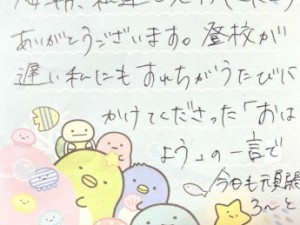 ありがとうございます。登校が
遅い私にもすれちがうたびに
かけてくださった「おは
よう」の一言で
今日も